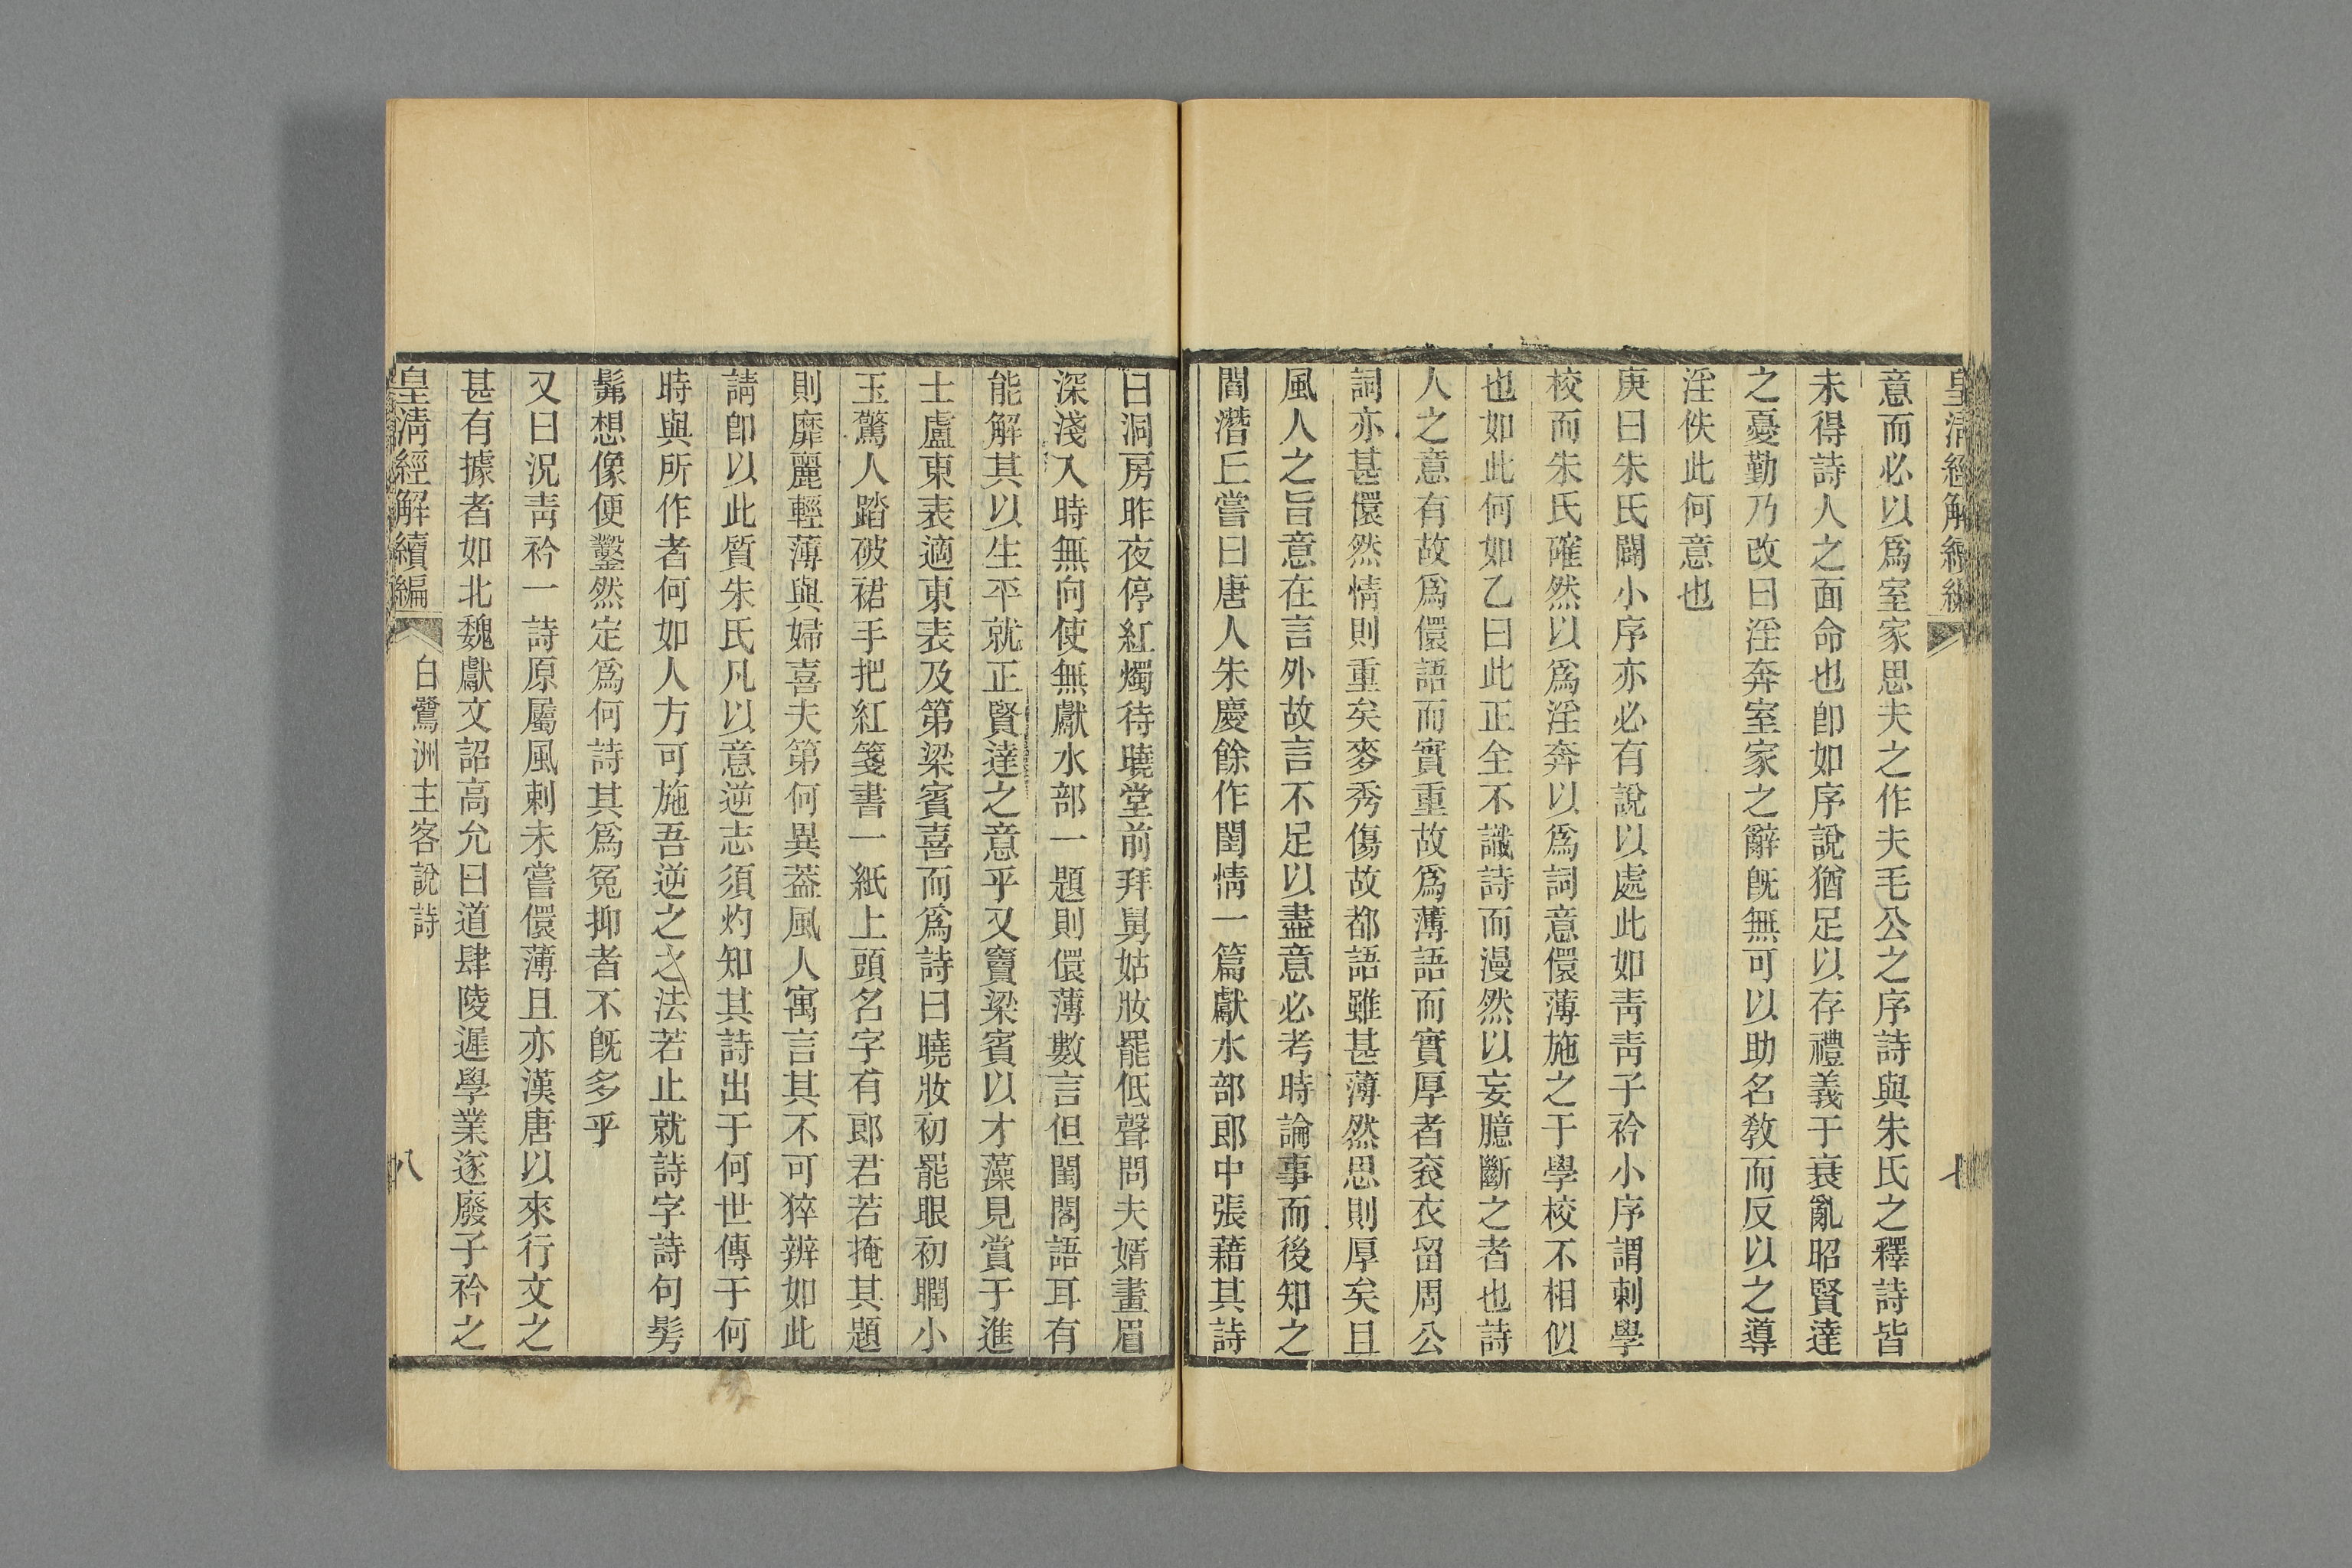 皇淸經解續編
七
意而必以爲室家思夫之作夫毛公之序詩與朱氏之釋詩皆
未得詩人之面命也卽如序說猶足以存禮義于衰亂昭賢達
之憂勤乃改曰淫奔室家之辭旣無可以助名敎而反以之導
淫佚此何意也
庚曰朱氏闢小序亦必有說以處此如靑靑子衿小序謂刺學
校而朱氏確然以爲淫奔以爲詞意儇薄施之于學校不相似
也如此何如乙曰此正全不識詩而漫然以妄臆斷之者也詩
人之意有故爲儇語而實重故爲薄語而實厚者袞衣留周公
詞亦甚儇然情則重矣麥秀傷故都語雖甚薄然思則厚矣且
風人之旨意在言外故言不足以盡意必考時論事而後知之
閻潛丘嘗曰唐人朱慶餘作閨情一篇獻水部郎中張藉其詩
曰洞房昨夜停紅燭待曉堂前拜舅姑妝罷低聲問夫婿畫眉
深淺入時無向使無獻水部一題則儇薄數言但閨閣語耳有
能解其以生平就正賢達之意乎又竇梁賓以才藻見賞于進
士盧東表適東表及第梁賓喜而爲詩曰曉妝初罷眼初瞤小
玉驚人踏破裙手把紅箋書一紙上頭名字有郎君若掩其題
則靡麗輕薄與婦喜夫第何異葢風人寓言其不可猝辨如此
請卽以此質朱氏凡以意逆志須灼知其詩出于何世傳于何
時與所作者何如人方可施吾逆之之法若止就詩字詩句髣
髴想像便鑿然定爲何詩其爲冤抑者不旣多乎
又曰況靑衿一詩原屬風刺未嘗儇薄且亦漢唐以來行文之
甚有據者如北魏獻文詔高允曰道肆陵遲學業遂廢子衿之
皇淸經解續編
白鷺洲主客說詩
八